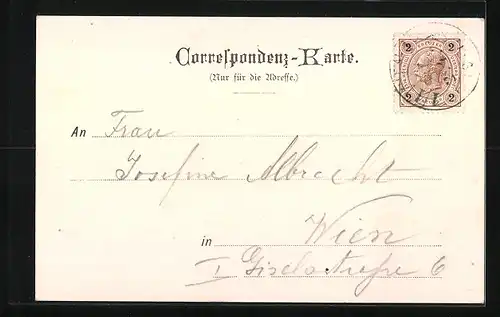 Correspondenz-Karte.
(Nur für die Adresse.)
2 2
2 2
An Frau
Josefine Albrecht
in Wien
I Giselastrasse 6